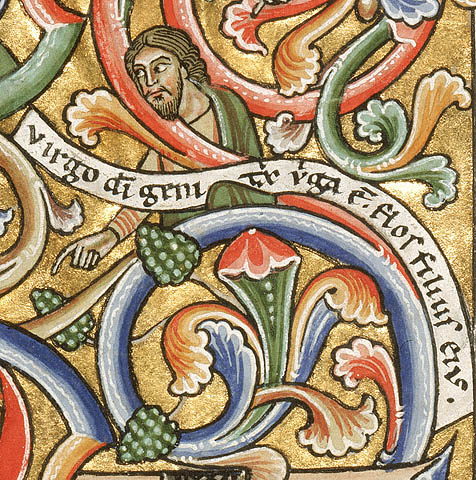 virgo dī geni tˣ v̇ga ē. flos filiuſ eius.